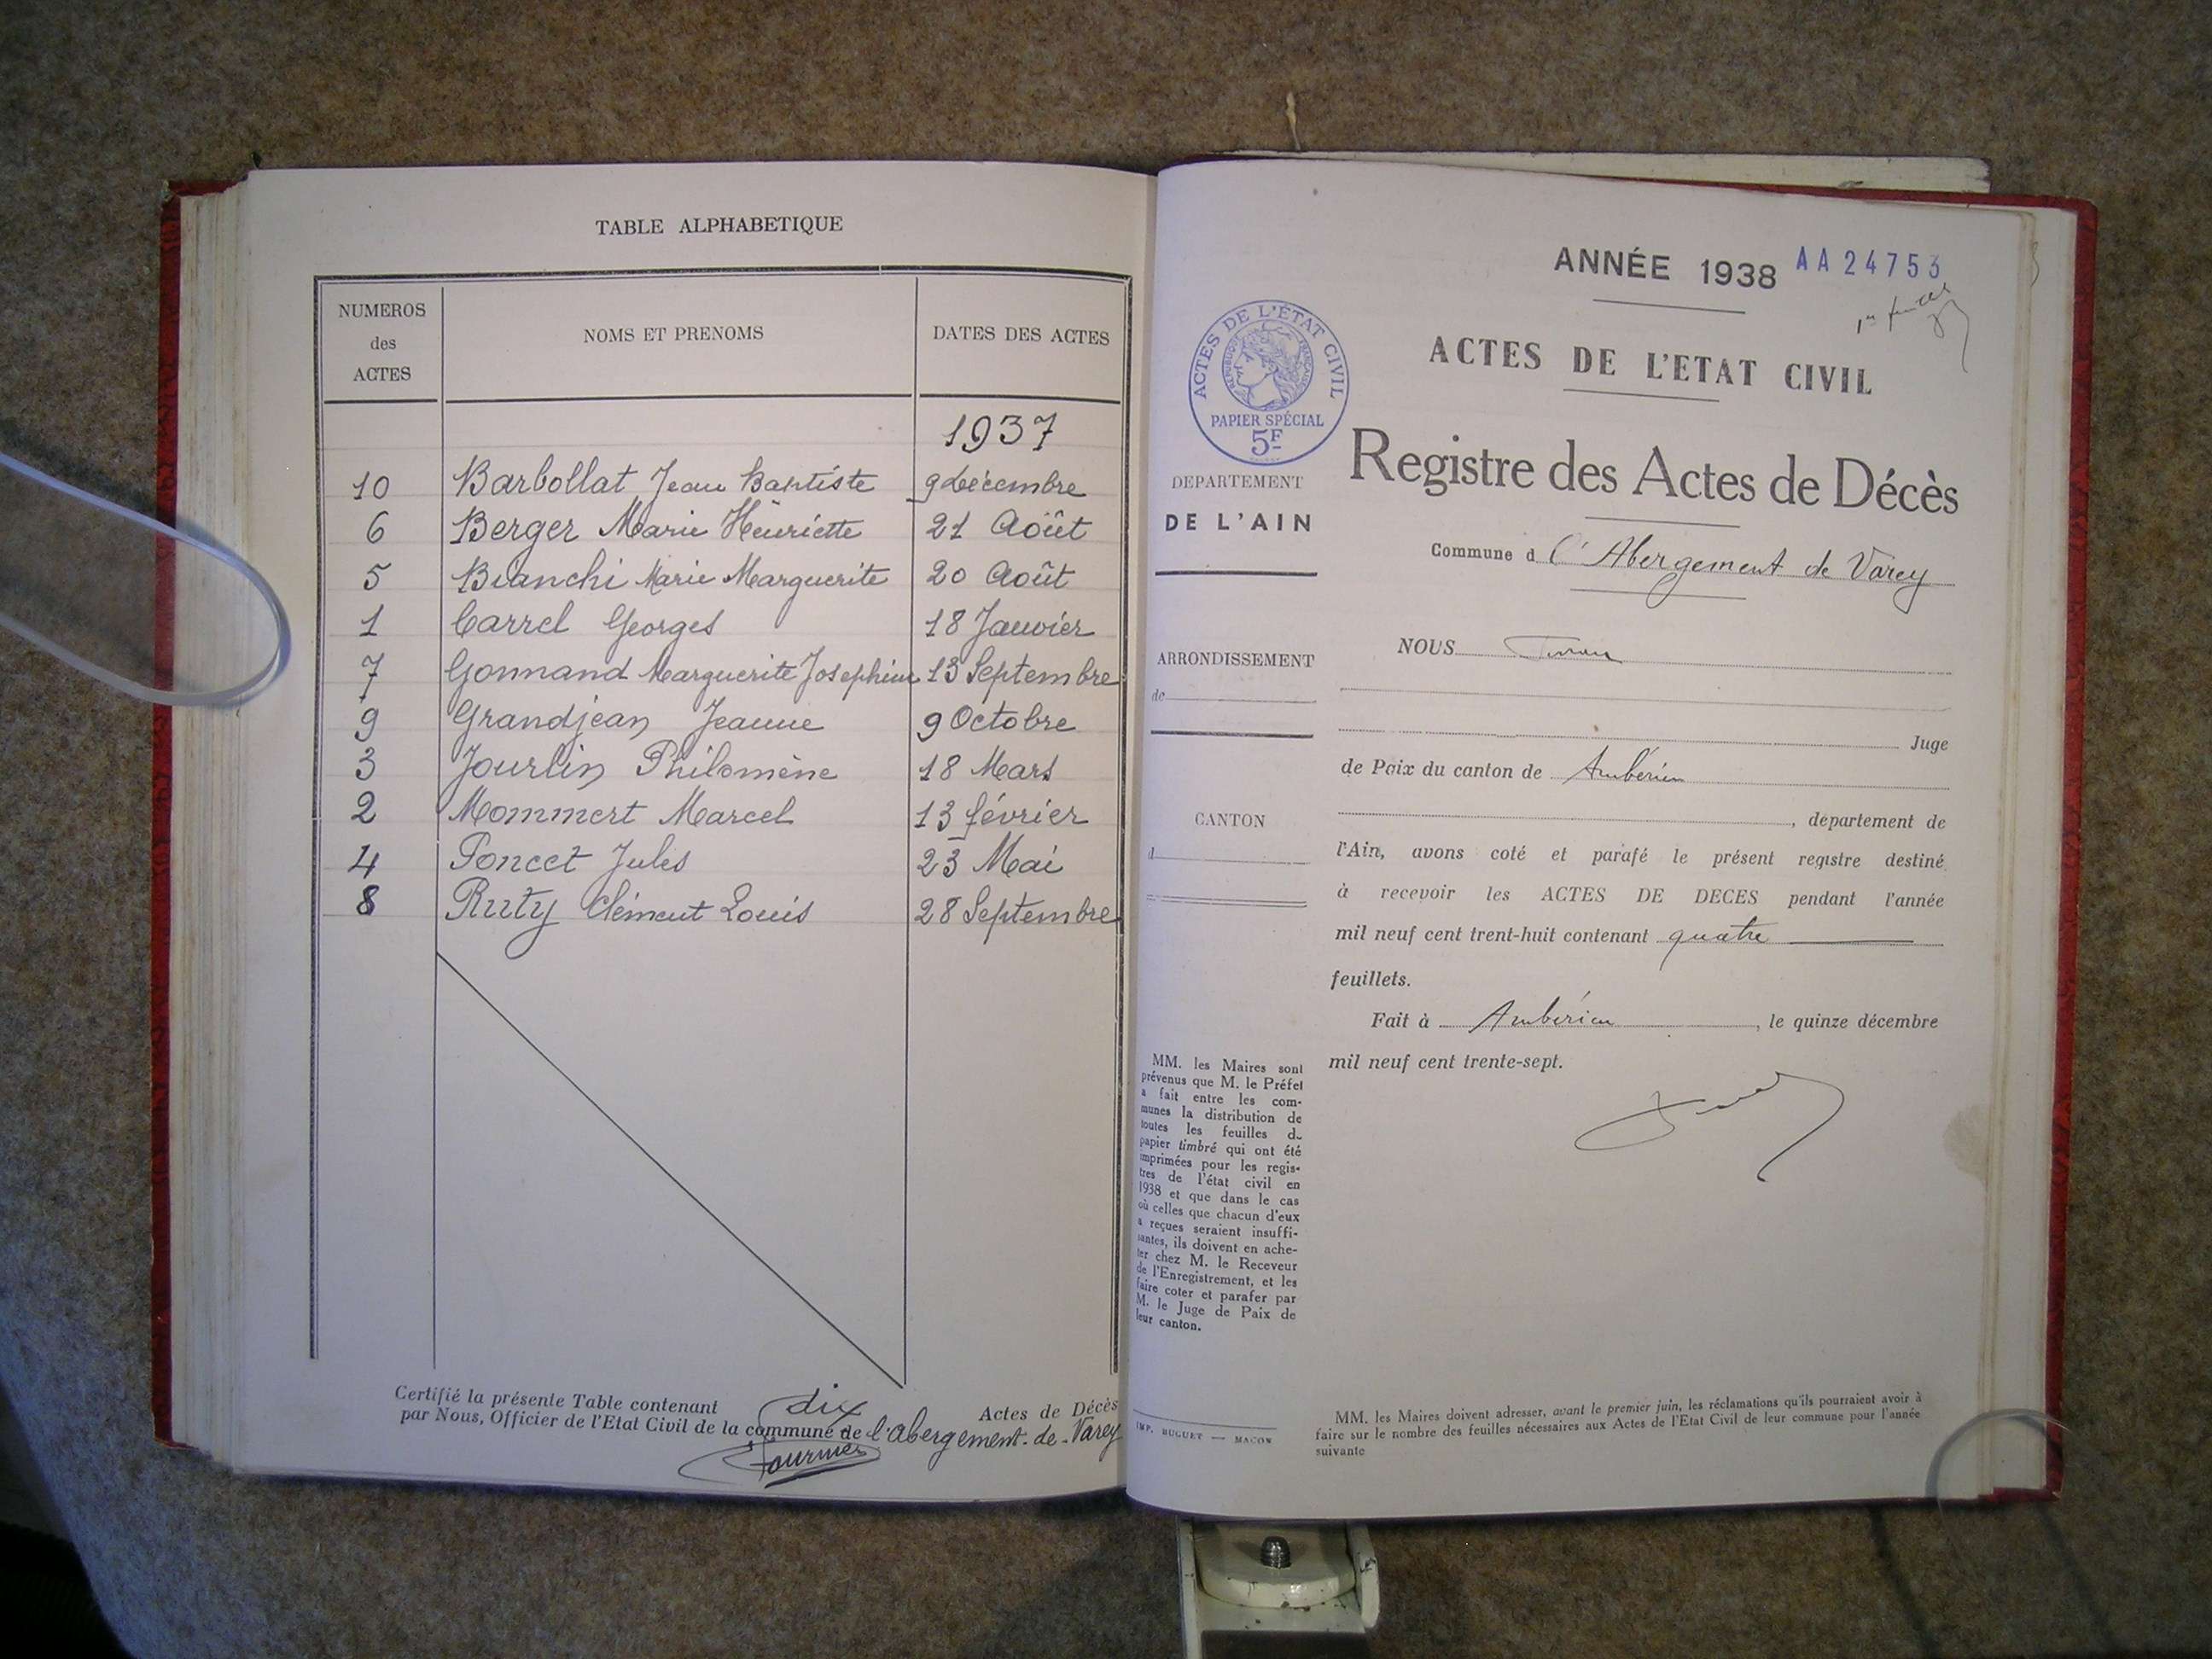 TABLE ALPHABETIQUE
NUMEROS des ACTES
NOMS ET PRENOMS
DATES DES ACTES
1937
10 Barbollat Jean Baptiste 9 Décembre
6 Berger Marie Henriette 21 Août
5 Bianchi Marie Marguerite 20 Août
1 Carrel Georges 18 Janvier
7 Gonnand Marguerite Josephine 13 Septembre
9 Grandjean Jeanne 9 Octobre
3 Jourlin Philomène 18 Mars
2 Mommert Marcel 13 février
4 Poncet Jules 23 Mai
8 Ruty Clément Louis 28 Septembre
Certifié la présente Table contenant dix Actes de Décès
par Nous, Officier de l'Etat Civil de la commune de l'Abergement-de-Varey
Fournier
ANNÉE 1938 AA24753
ACTES DE L'ETAT CIVIL
ACTES DE L'ÉTAT CIVIL
RÉPUBLIQUE FRANÇAISE
PAPIER SPÉCIAL
5F
Registre des Actes de Décès
DEPARTEMENT
DE L'AIN
Commune d l'Abergement de Varey
ARRONDISSEMENT
de
CANTON
d
NOUS
Juge
de Paix du canton de Ambérieu
, département de
l'Ain, avons coté et parafé le présent registre destiné
à recevoir les ACTES DE DECES pendant l'année
mil neuf cent trent-huit contenant quatre
feuillets.
Fait à Ambérieu, le quinze décembre
mil neuf cent trente-sept.
MM. les Maires sont
prévenus que M. le Préfet
a fait entre les com-
munes la distribution de
toutes les feuilles du
papier timbré qui ont été
imprimées pour les regis-
tres de l'état civil en
1938 et que dans le cas
où celles que chacun d'eux
a reçues seraient insuffi-
santes, ils doivent en ache-
ter chez M. le Receveur
de l'Enregistrement, et les
faire coter et parafer par
M. le Juge de Paix de
leur canton.
IMP. BUGUET — MACON
MM. les Maires doivent adresser, avant le premier juin, les réclamations qu'ils pourraient avoir à
faire sur le nombre des feuilles nécessaires aux Actes de l'Etat Civil de leur commune pour l'année
suivante